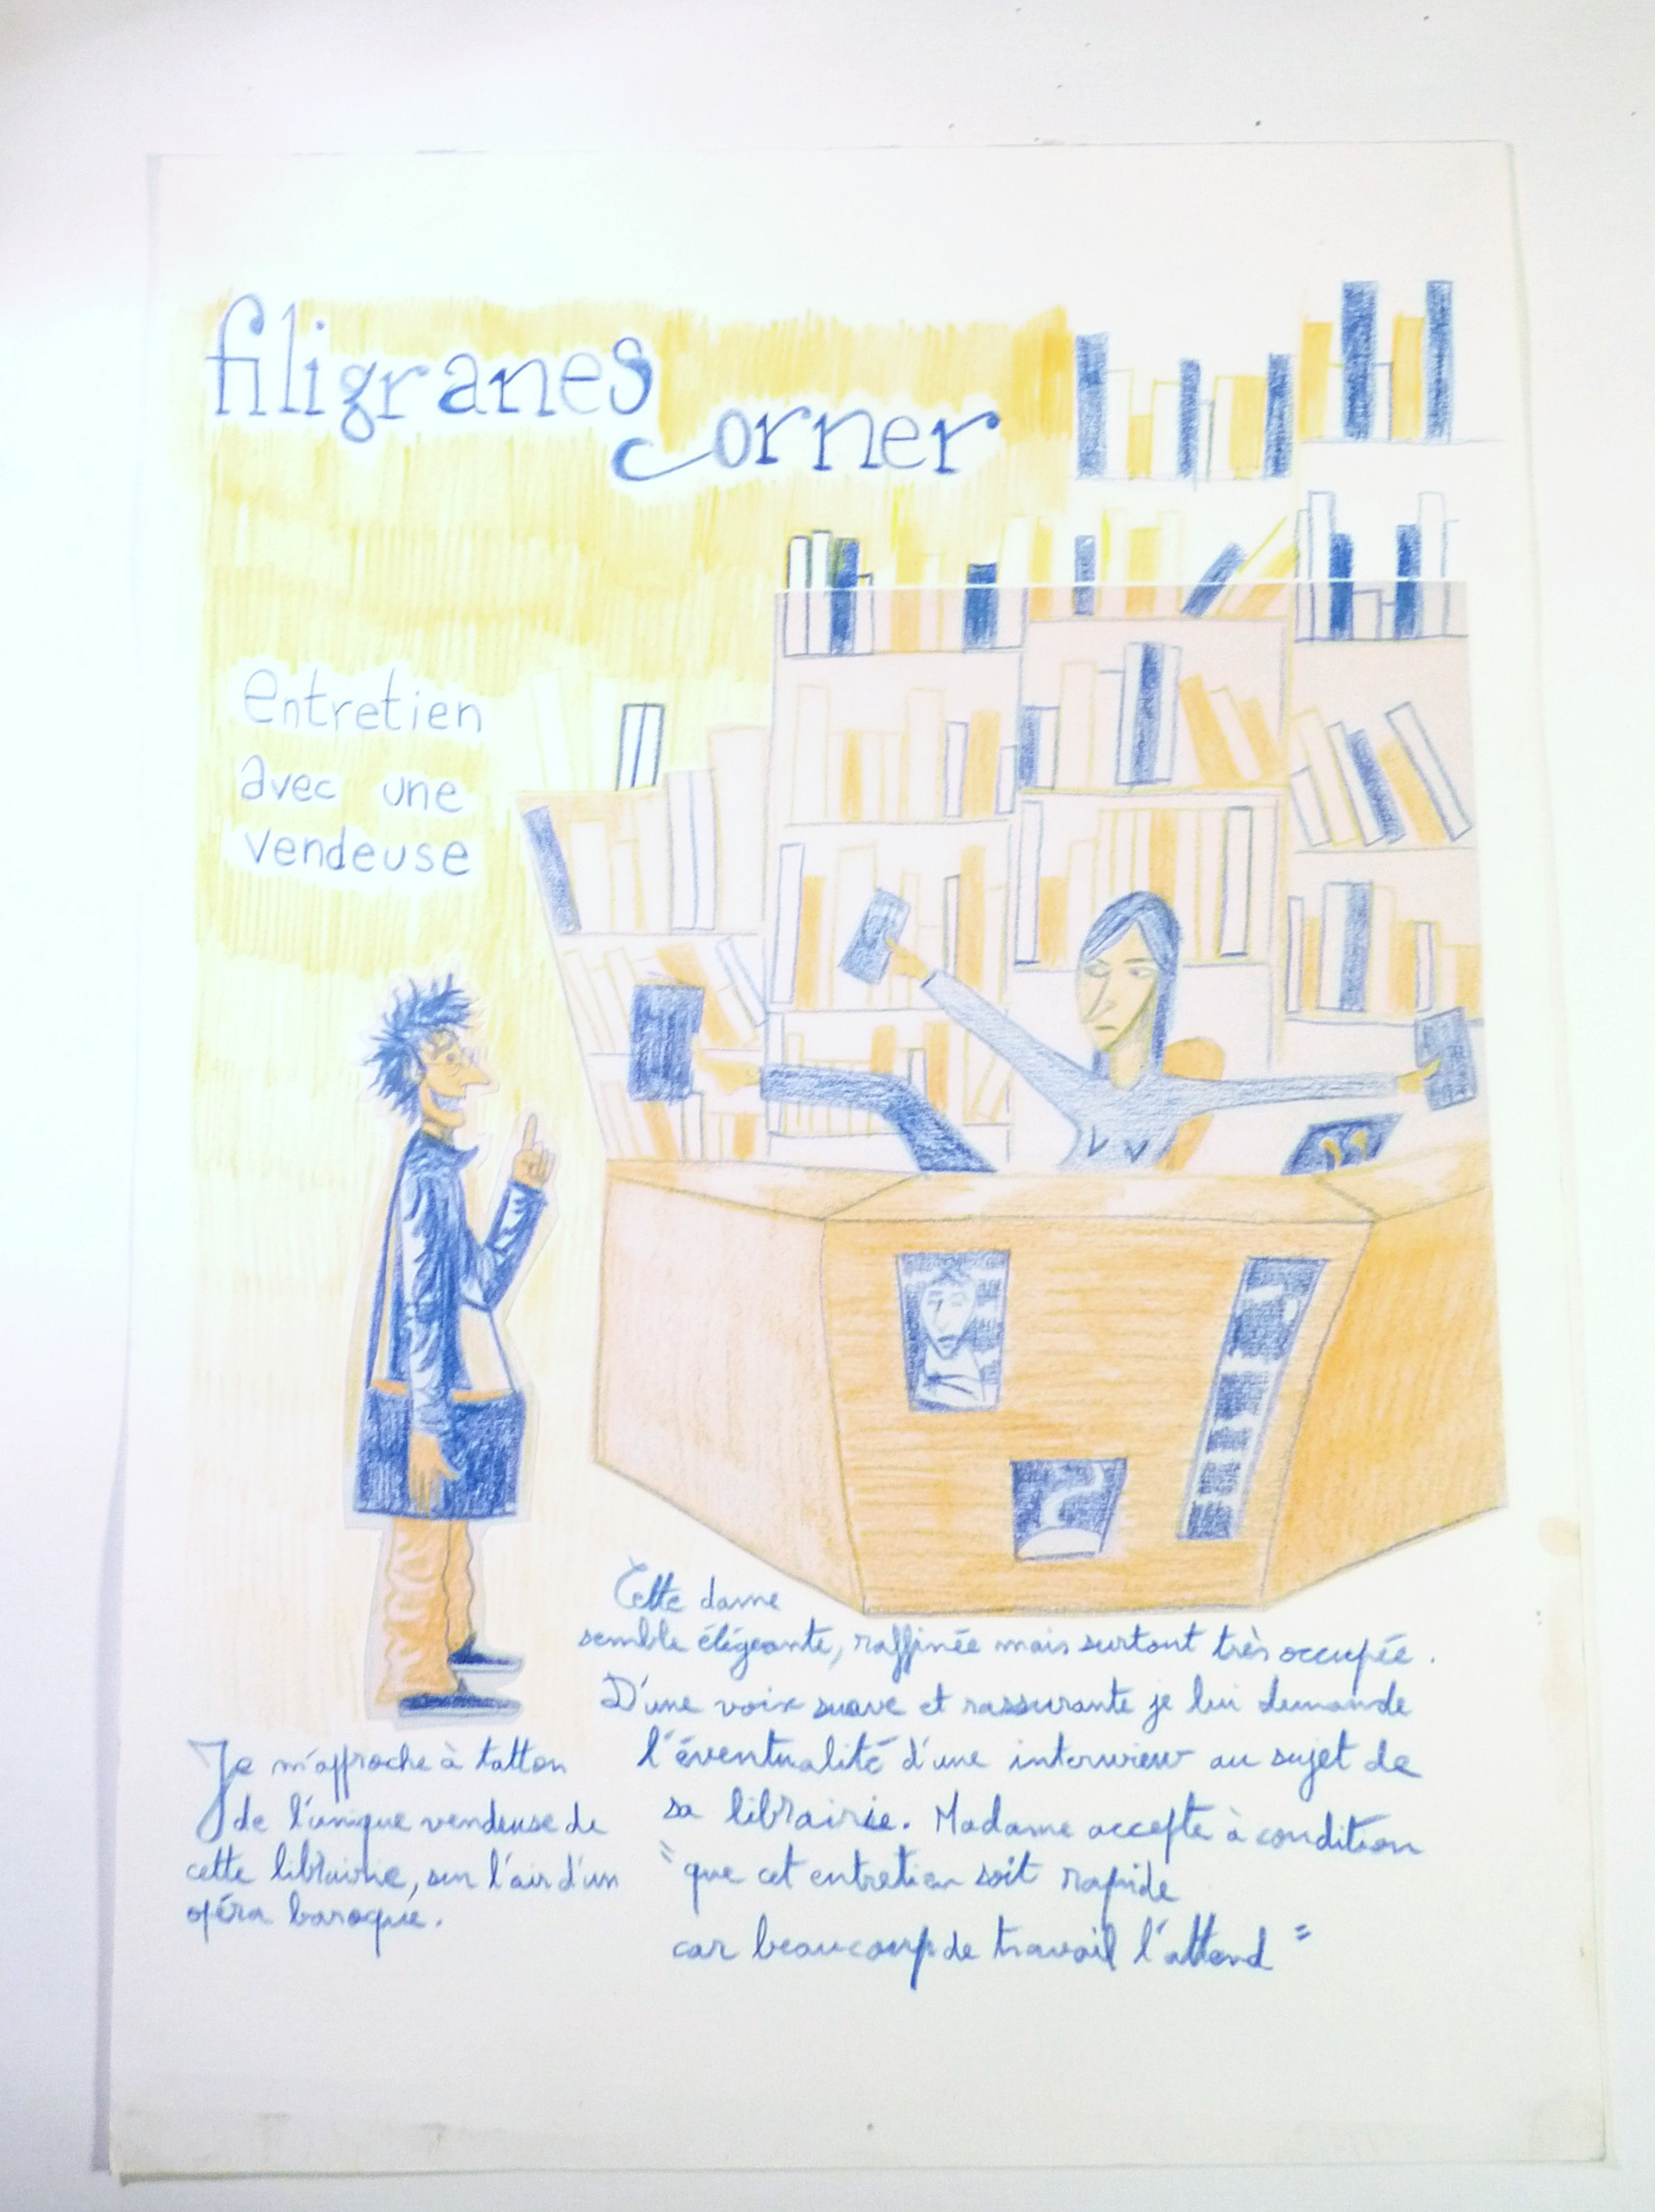 filigranes
corner
entretien
avec une
vendeuse
Je m'approche à tatton
de l'unique vendeuse de
cette librairie, sur l'air d'un
opéra baroque.
Cette dame
semble élégeante, raffinée mais surtout très occupée.
D'une voix suave et rassurante je lui demande
l'éventualité d'une interview au sujet de
sa librairie. Madame accepte à condition
"que cet entretien soit rapide
car beaucoup de travail l'attend"